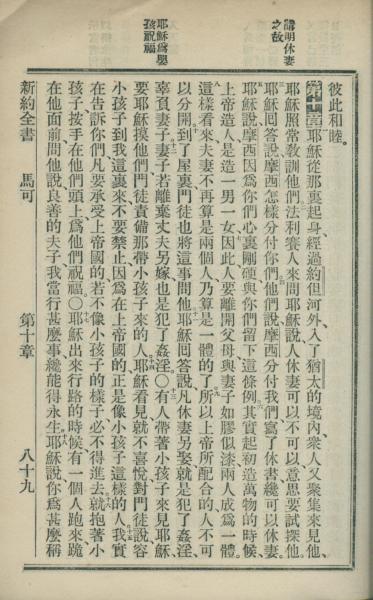 講明休妻
之故
耶穌爲嬰
孩祝福
彼此和睦。
第十章耶穌從那裏起身、經過約但河外、入了猶太的境內、衆人又聚集來見他、
耶穌照常敎訓他們、法利賽人來問耶穌說、人休妻可以不可以、意思要試探他、
耶穌回答說、摩西怎樣分付你們、他們說、摩西分付我們寫了休書、纔可以休妻、
耶穌說、摩西因爲你們心裏剛硬、與你們留下這條例、其實起初造萬物的時候、
上帝造人、是造一男一女、因此人要離開父母、與妻子如膠似漆、兩人成爲一體、
這樣看來、夫妻不再算是兩個人、乃算是一體的了、所以上帝所配合的、人不可
以分開、到了屋裏、門徒也將這事問他、耶穌回答說、凡休妻另娶、就是犯了姦淫、
辜負妻子、妻子若離棄丈夫另嫁、也是犯了姦淫、〇有人帶著小孩子來見耶穌、
要耶穌摸他們、門徒責備那帶小孩子來的人、耶穌看見就不喜悅、對門徒說、容
小孩子到我這裏來、不要禁止、因爲在上帝國的、正是像小孩子這樣的人、我實
在告訴你們、凡要承受上帝國的、若不像小孩子的樣子、必不得進去、就抱著小
孩子、按手在他們頭上、爲他們祝福、〇耶穌出來行路的時候、有一個人跑來、跪
在他面前、問他說、良善的夫子、我當行甚麼事、纔能得永生、耶穌說、你爲甚麼稱
新約全書 馬可 第十章 八十九